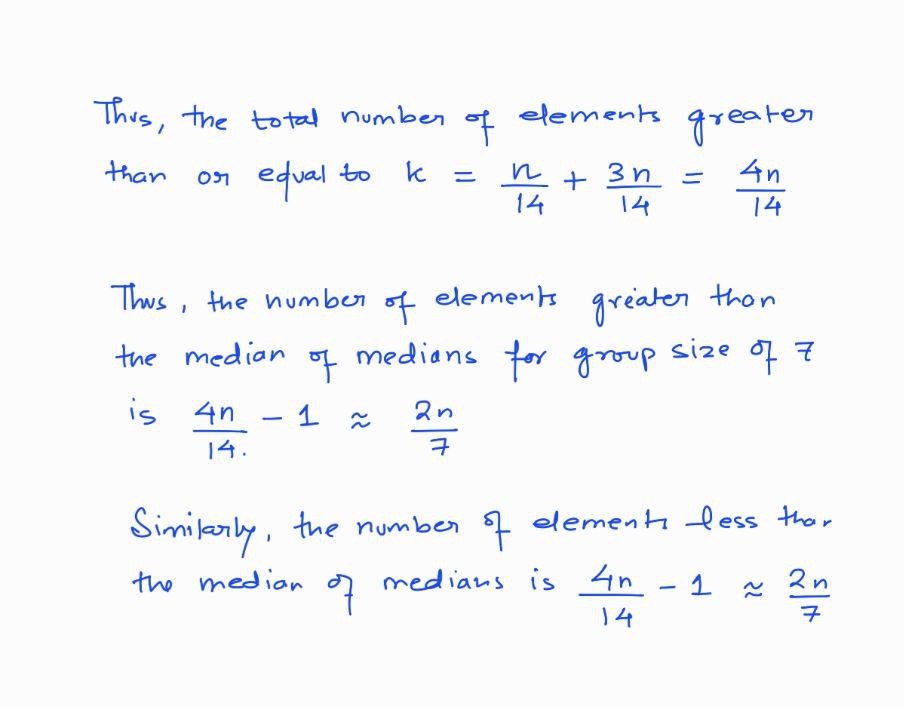 Thus, the total number of elements greater
than or equal to k = n/14 + 3n/14 = 4n/14
Thus, the number of elements greater than
the median of medians for group size of 7
is 4n/14. - 1 ≈ 2n/7
Similarly, the number of elements less than
the median of medians is 4n/14 - 1 ≈ 2n/7